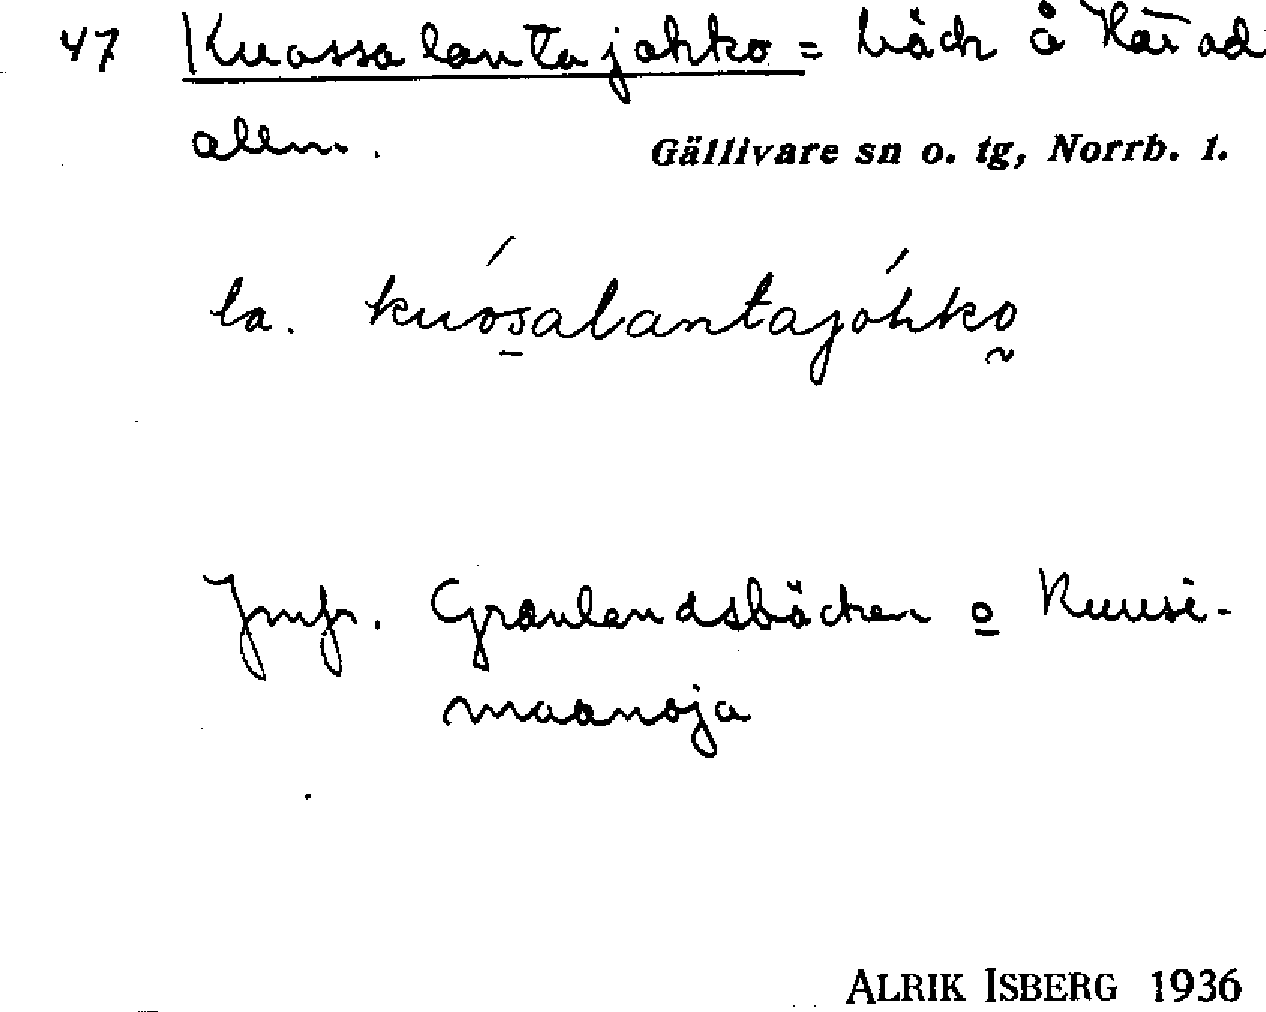 47 Kuossalantajohko = bäck å Häråd
allm. Gällivare sn o. tg, Norrb. l.
la. kuósalantajóhko
Jmfr. Granlandsbäcken o Kuusi-
maanoja
ALRIK ISBERG 1936